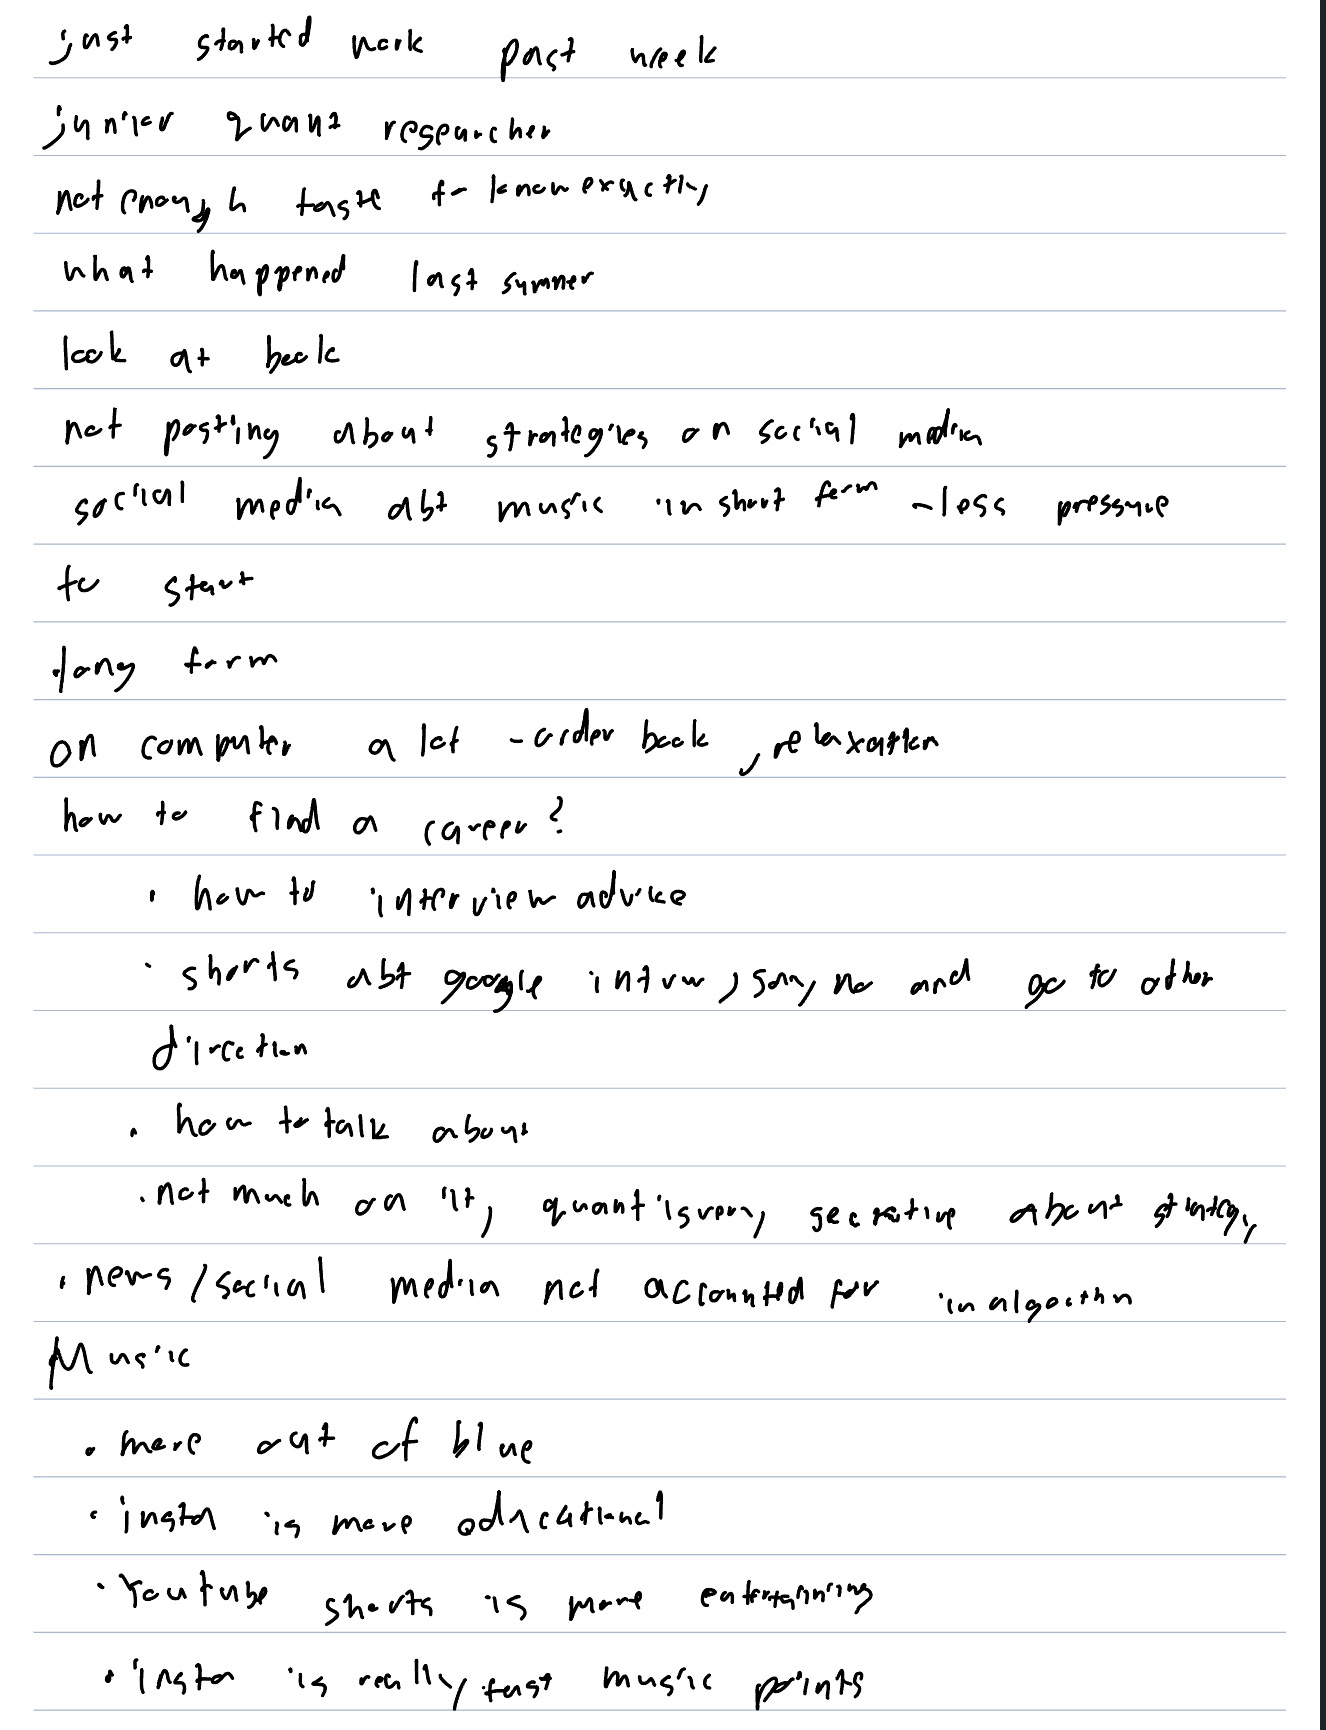 just started work past week
junior quant researcher
not enough taste to know exactly
what happened last summer
look at book
not posting about strategies on social media
social media abt music in short form - less pressure
to start
. long form
on computer a lot - order book, relaxation
how to find a career?
• how to interview advice
• shorts abt google intrvw, say no and go to other
direction
• how to talk about
• not much on it, quant is very secretive about strategy
• news / social media not accounted for in algorithm
Music
• more out of blue
• insta is more educational
• Youtube shorts is more entertaining
• insta is really fast music points